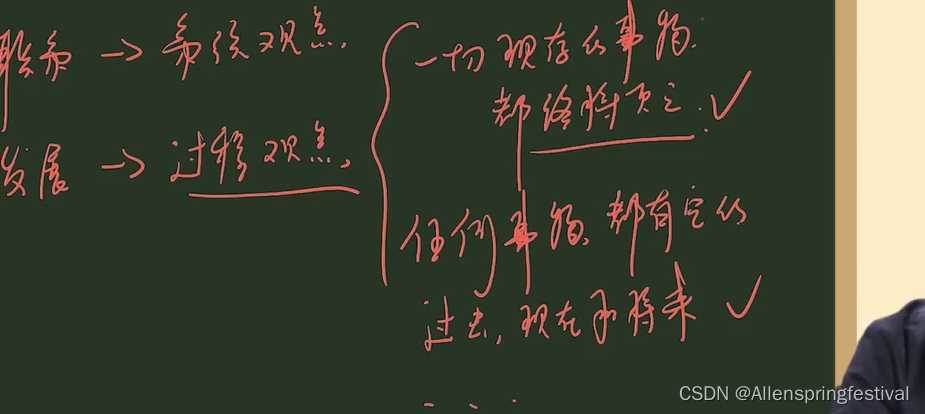 联系 → 系统观点.
发展 → 过程观点.
一切现存的事物.
都终将灭亡. ✓
任何事物, 都有它的
过去, 现在和将来 ✓
...
CSDN @Allenspringfestival